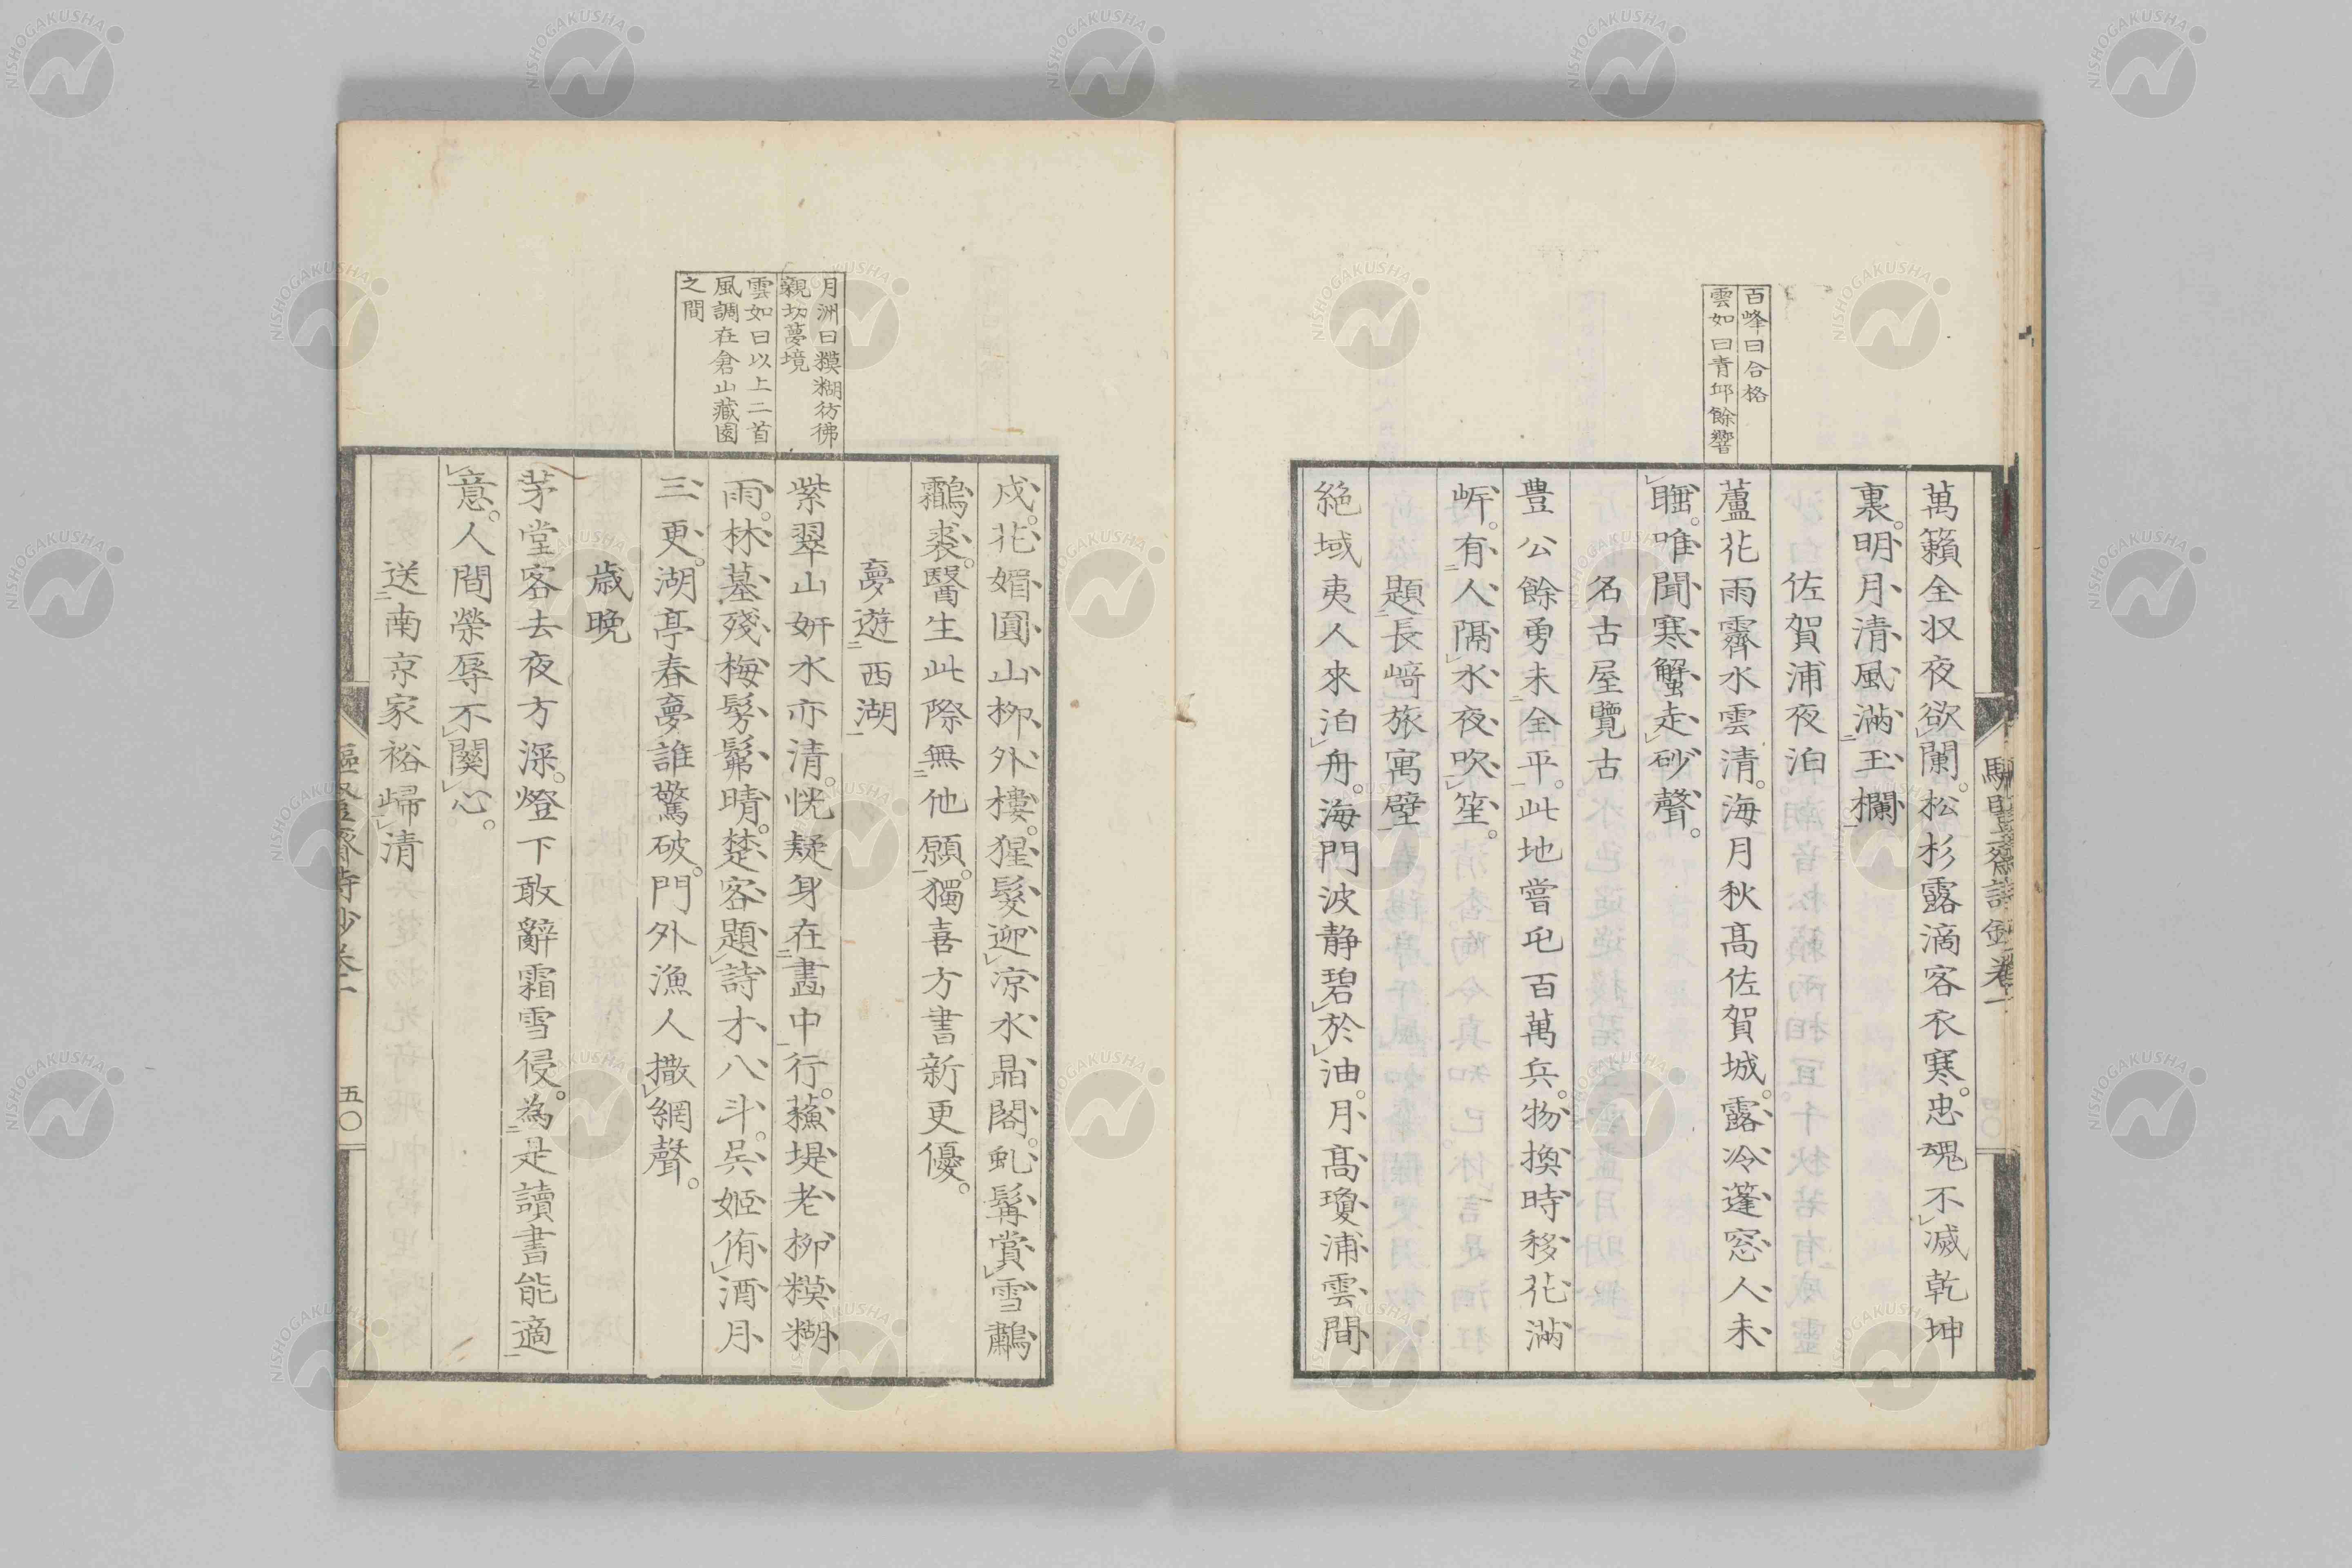 百峰曰合格
雲如曰青邱餘響
萬籟全収夜欲闌。松杉露滴客衣寒。忠魂不滅乾坤
裏。明月清風滿玉欄
佐賀浦夜泊
蘆花雨霽水雲清。海月秋髙佐賀城。露冷蓬窓人未
睡。唯聞寒蟹走砂聲。
名古屋覽古
豊公餘勇未全平。此地嘗屯百萬兵。物換時移花滿
岍。有人隔水夜吹笙。
題長﨑旅寓壁
絶域夷人來泊舟。海門波静碧於油。月髙瓊浦雲間
月洲曰糢糊彷彿
親坊夢境
雲如曰以上二首
風調在倉山藏園
之間
戍。花媚圓山柳外樓。猩髮迎凉水晶閣。虬髯賞雪鷫
鸘裘。醫生此際無他願。獨喜方書新更優。
夢遊西湖
紫翠山妍水亦清。恍疑身在畫中行。蘓堤老柳糢糊
雨。林墓殘梅髣髴晴。楚客題詩才八斗。呉姬侑酒月
三更。湖亭春夢誰驚破。門外漁人撒網聲。
歳晩
茅堂客去夜方深。燈下敢辭霜雪侵。為是讀書能適
意。人間榮辱不關心。
送南京家裕歸清
五〇